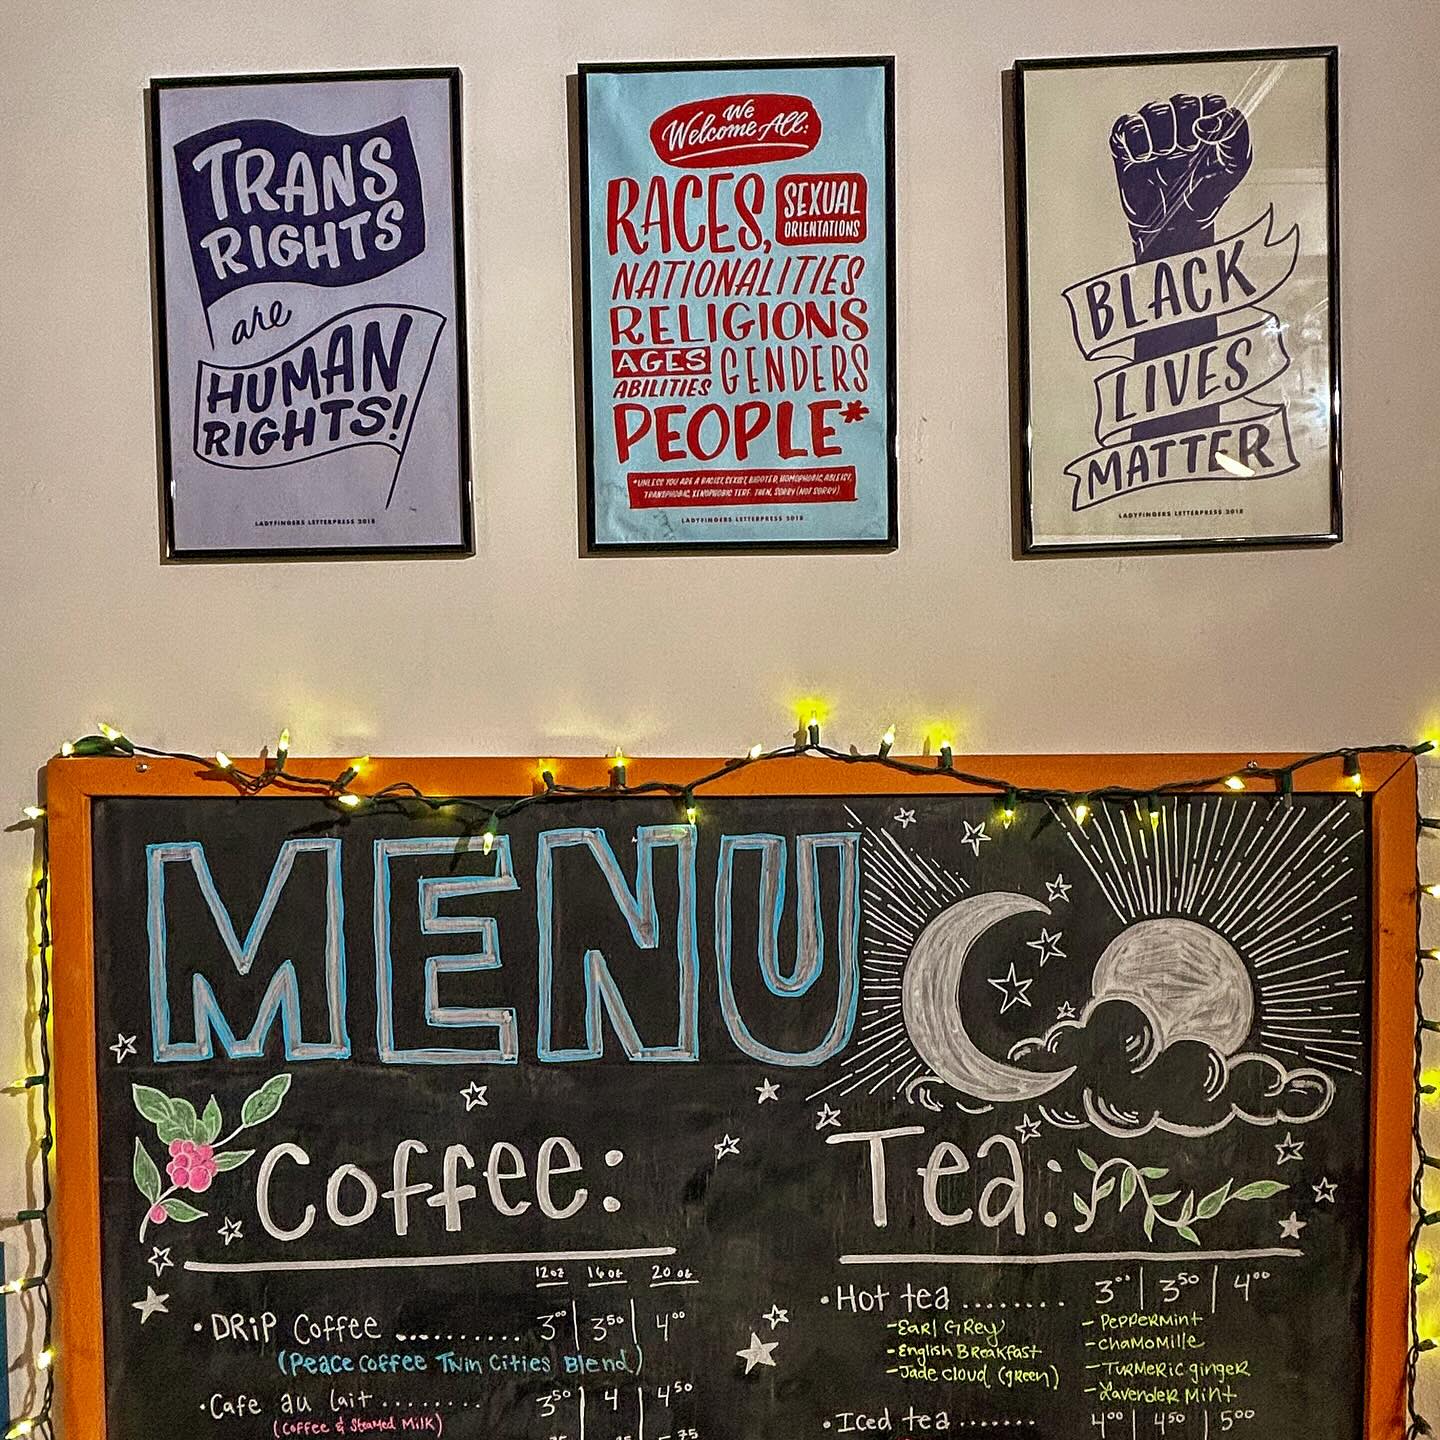 TRANS
RIGHTS
are
HUMAN
RIGHTS!
LADYFINGERS LETTERPRESS 2018
We
Welcome All:
RACES,
SEXUAL
ORIENTATIONS
NATIONALITIES
RELIGIONS
AGES
ABILITIES
GENDERS
PEOPLE*
*UNLESS YOU ARE A RACIST, SEXIST, BIGOTED, HOMOPHOBIC, ABLEIST,
TRANSPHOBIC, XENOPHOBIC TERF. THEN, SORRY (NOT SORRY)
LADYFINGERS LETTERPRESS 2018
BLACK
LIVES
MATTER
LADYFINGERS LETTERPRESS 2018
MENU
Coffee:
12oz 16oz 20oz
• DRiP Coffee ............ 3⁰⁰ | 3⁵⁰ | 4⁰⁰
(Peace Coffee Twin Cities Blend)
• Cafe au lait ........ 3⁵⁰ | 4 | 4⁵⁰
(Coffee & Steamed Milk)
Tea:
• Hot tea ........ 3⁰⁰ | 3⁵⁰ | 4⁰⁰
- Earl Grey
- English Breakfast
- Jade Cloud (green)
- Peppermint
- Chamomille
- Turmeric ginger
- Lavender Mint
• Iced tea ....... 4⁰⁰ | 4⁵⁰ | 5⁰⁰